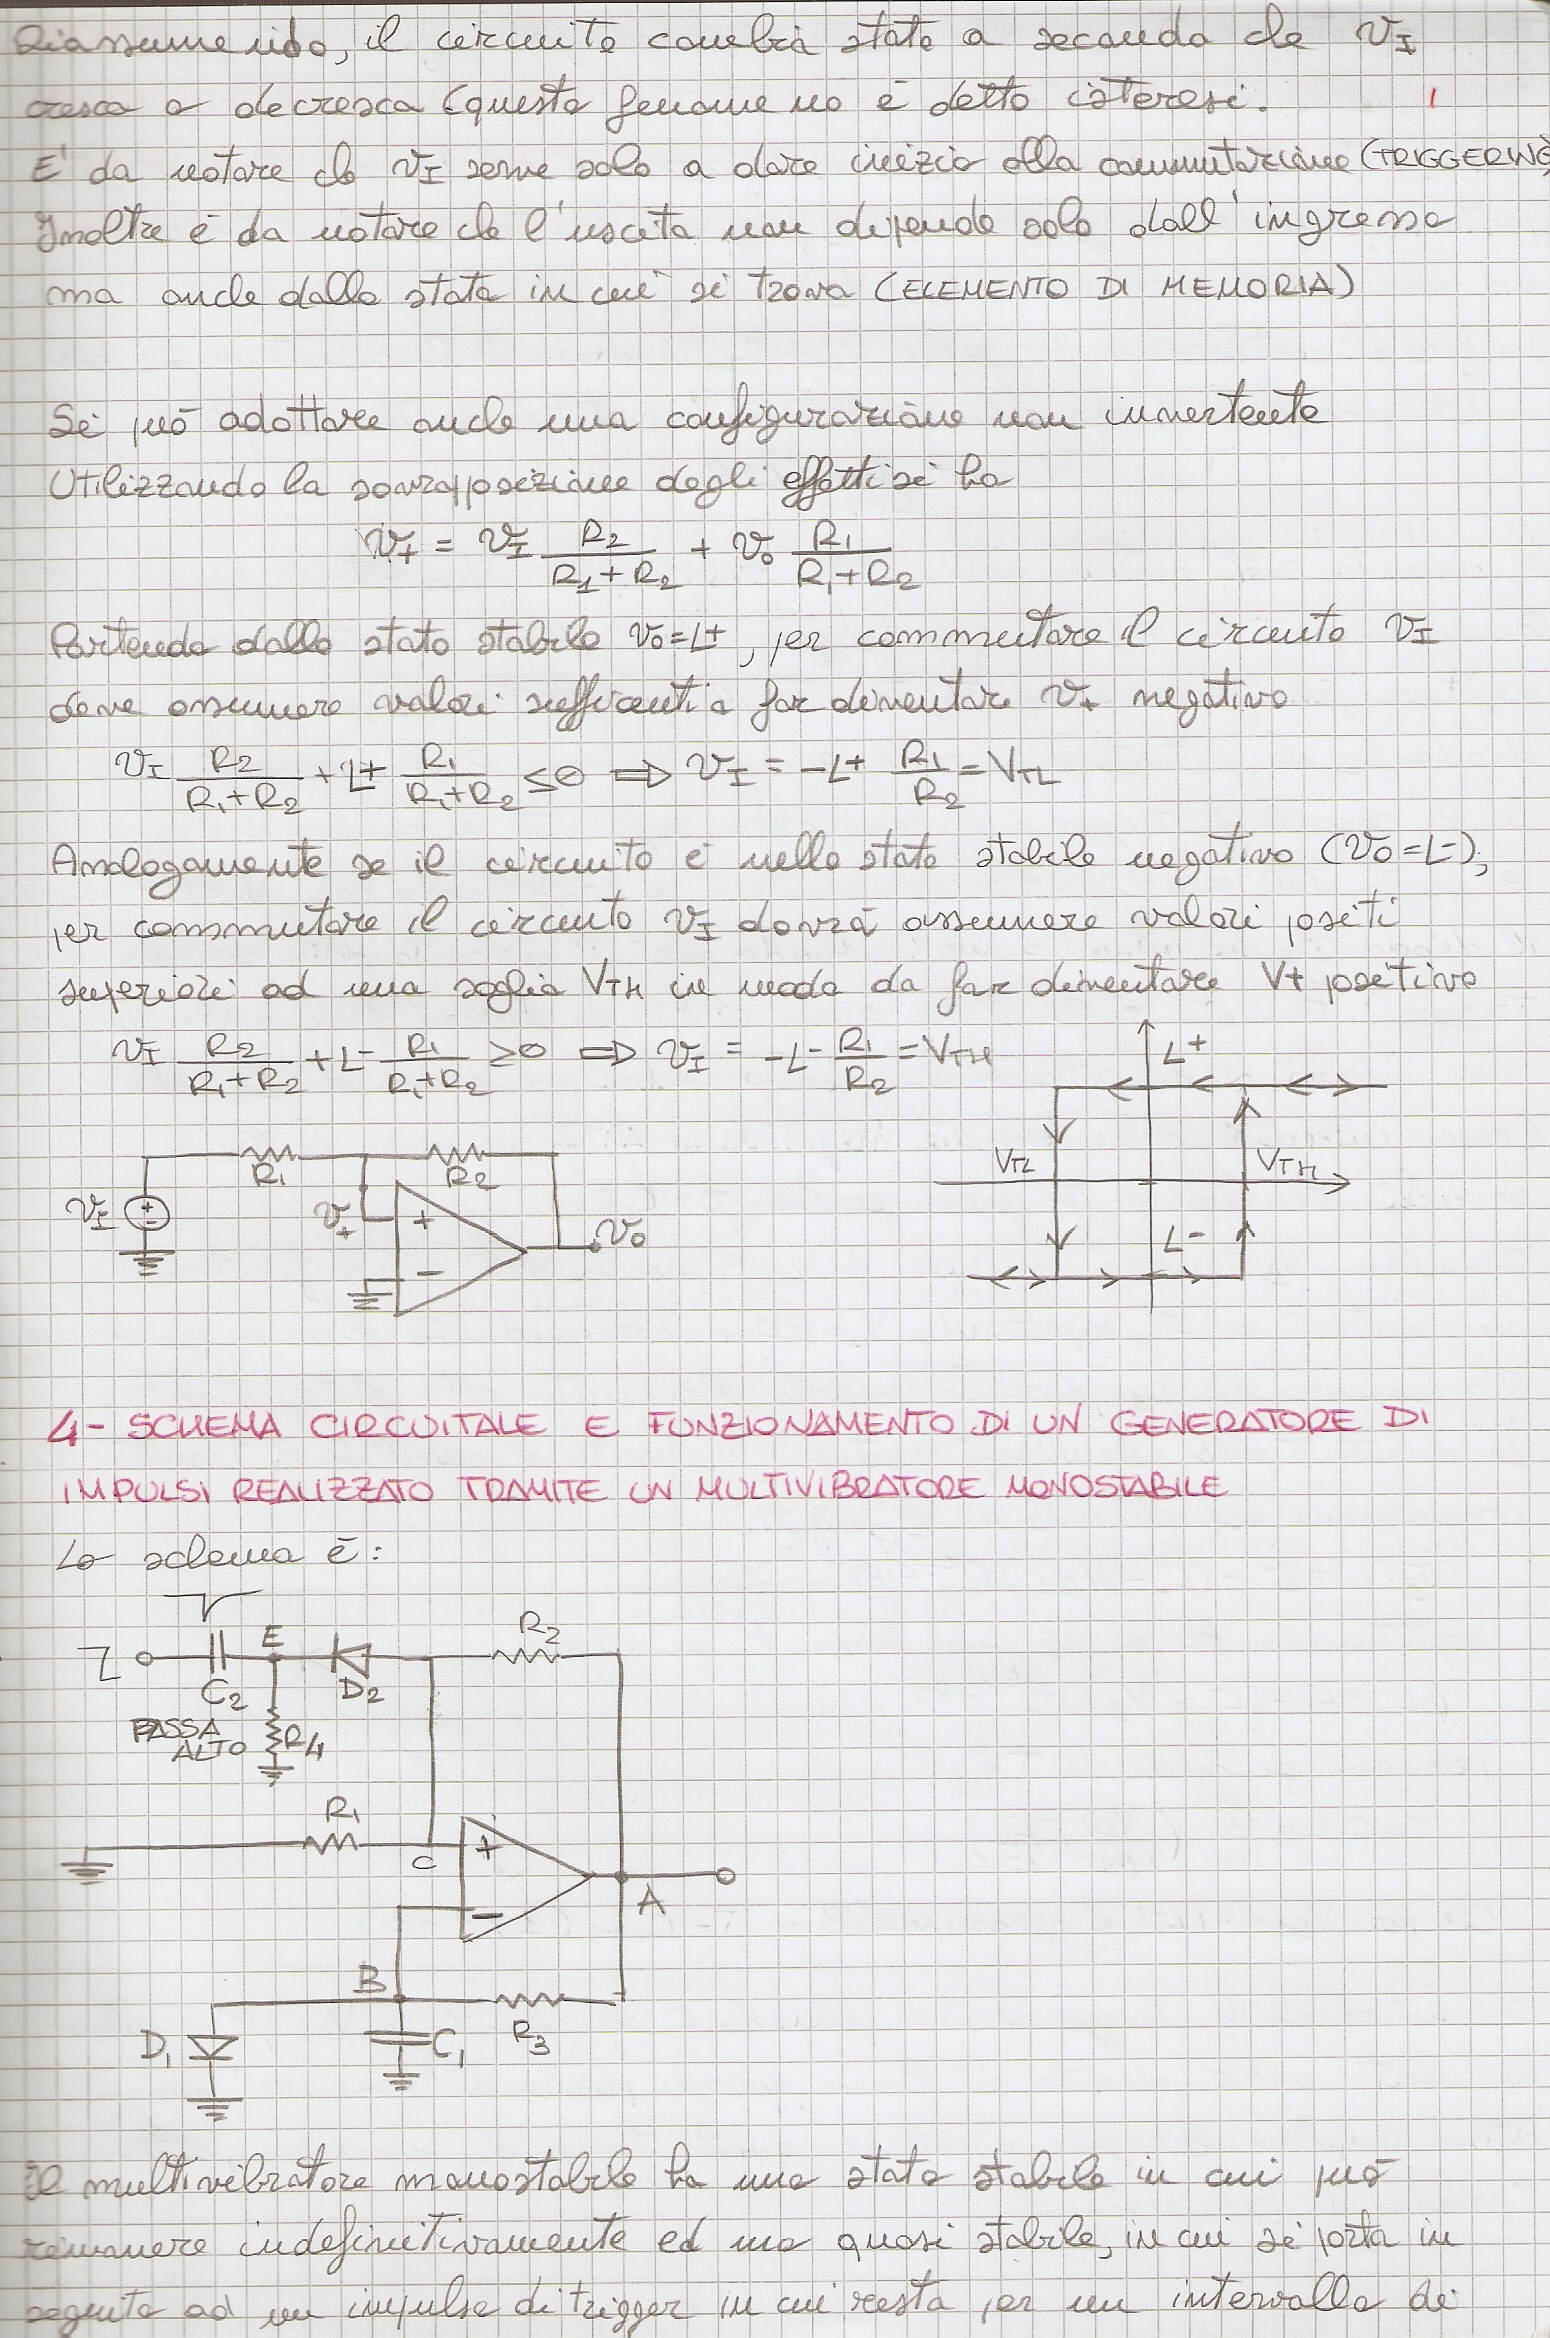 Riassumendo, il circuito cambia stato a seconda che v_I
cresca o decresca (questo fenomeno è detto isteresi.
E' da notare che v_I serve solo a dare inizio alla commutazione (TRIGGERING)
Inoltre è da notare che l'uscita non dipende solo dall'ingresso
ma anche dallo stato in cui si trova (ELEMENTO DI MEMORIA)
Si può adottare anche una configurazione non invertente
Utilizzando la sovrapposizione degli effetti si ha
v_+ = v_I R_2/(R_1+R_2) + v_o R_1/(R_1+R_2)
Partendo dallo stato stabile v_o=L+, per commutare il circuito v_I
deve assumere valori sufficienti a far diventare v_+ negativo
v_I R_2/(R_1+R_2) + L+ R_1/(R_1+R_2) ≤0 ⇒ v_I = -L+ R_1/R_2 = V_TL
Analogamente se il circuito è nello stato stabile negativo (v_o=L-);
per commutare il circuito v_I dovrà assumere valori positi
superiori ad una soglia V_TH in modo da far diventare V+ positivo
v_I R_2/(R_1+R_2) + L- R_1/(R_1+R_2) ≥0 ⇒ v_I = -L- R_1/R_2 = V_TH
L+
V_TL
V_TH
L-
R_1
R_2
v_I
+
-
v_+
+
-
v_o
4- SCHEMA CIRCUITALE E FUNZIONAMENTO DI UN GENERATORE DI
IMPULSI REALIZZATO TRAMITE UN MULTIVIBRATORE MONOSTABILE
Lo schema è:
E
R_2
C_2
D_2
PASSA
ALTO
R_4
R_1
C
+
-
A
B
D_1
C_1
R_3
Il multivibratore monostabile ha uno stato stabile in cui può
rimanere indefinitivamente ed uno quasi stabile, in cui si porta in
seguito ad un impulso di trigger in cui resta per un intervallo di